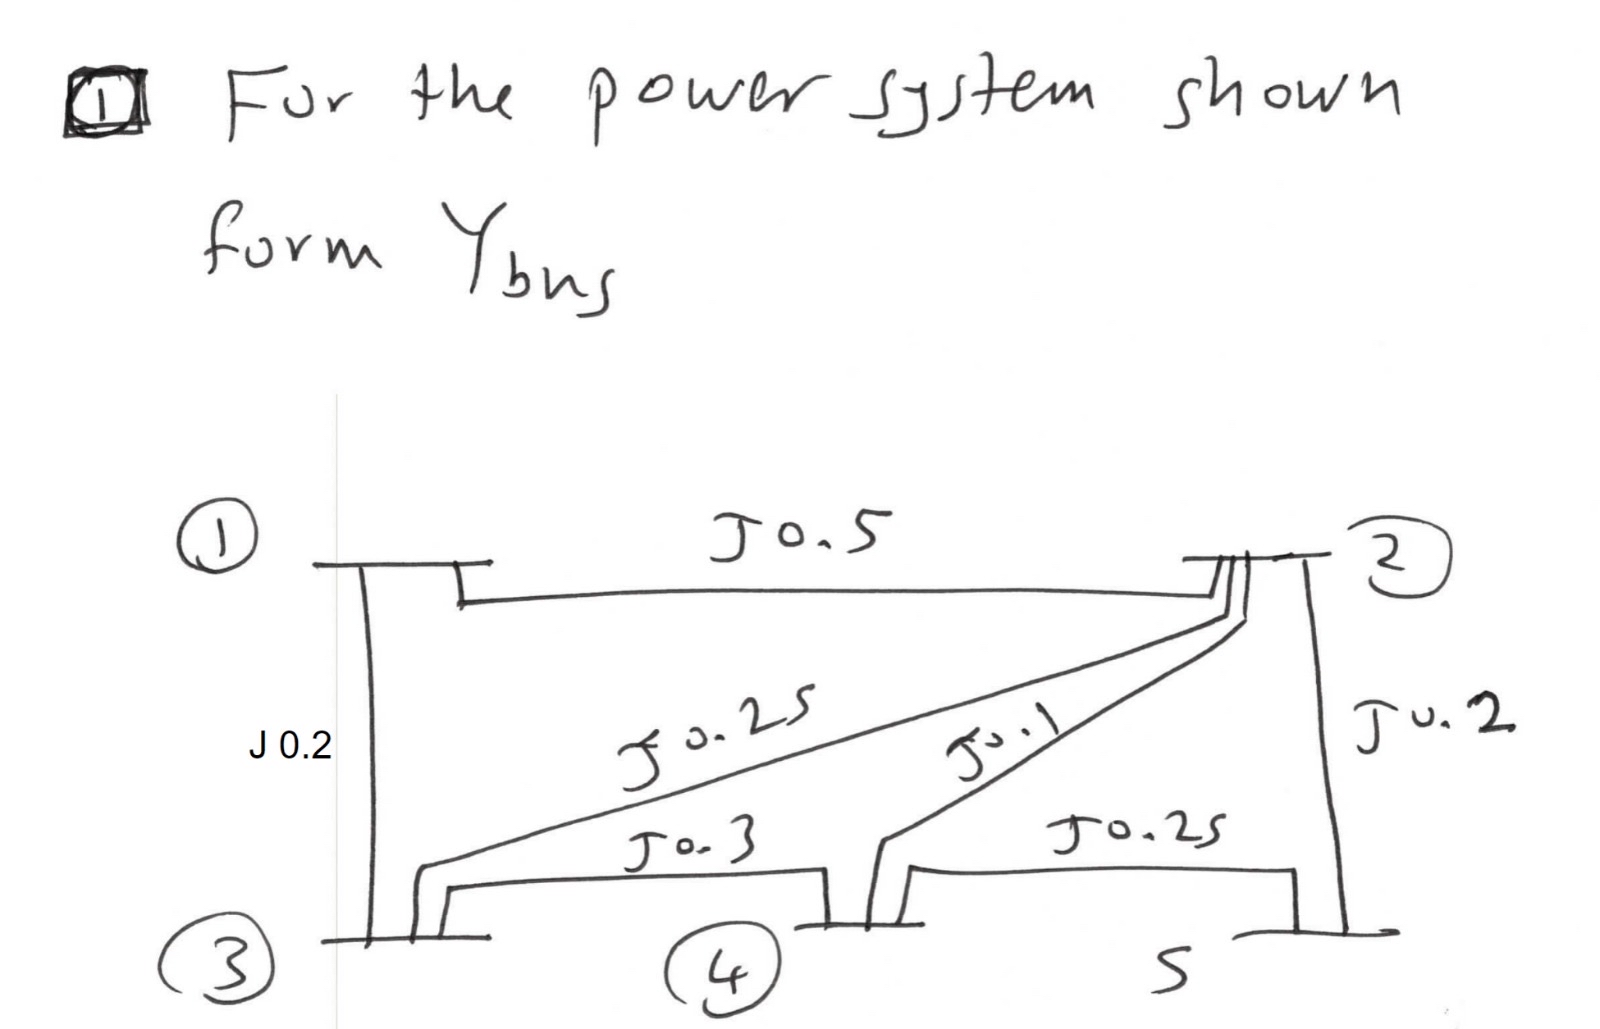 1 For the power system shown
form Ybus
1 J0.5 2
J 0.2 J0.25 J0.1 J0.2
J0.3 J0.25
3 4 5